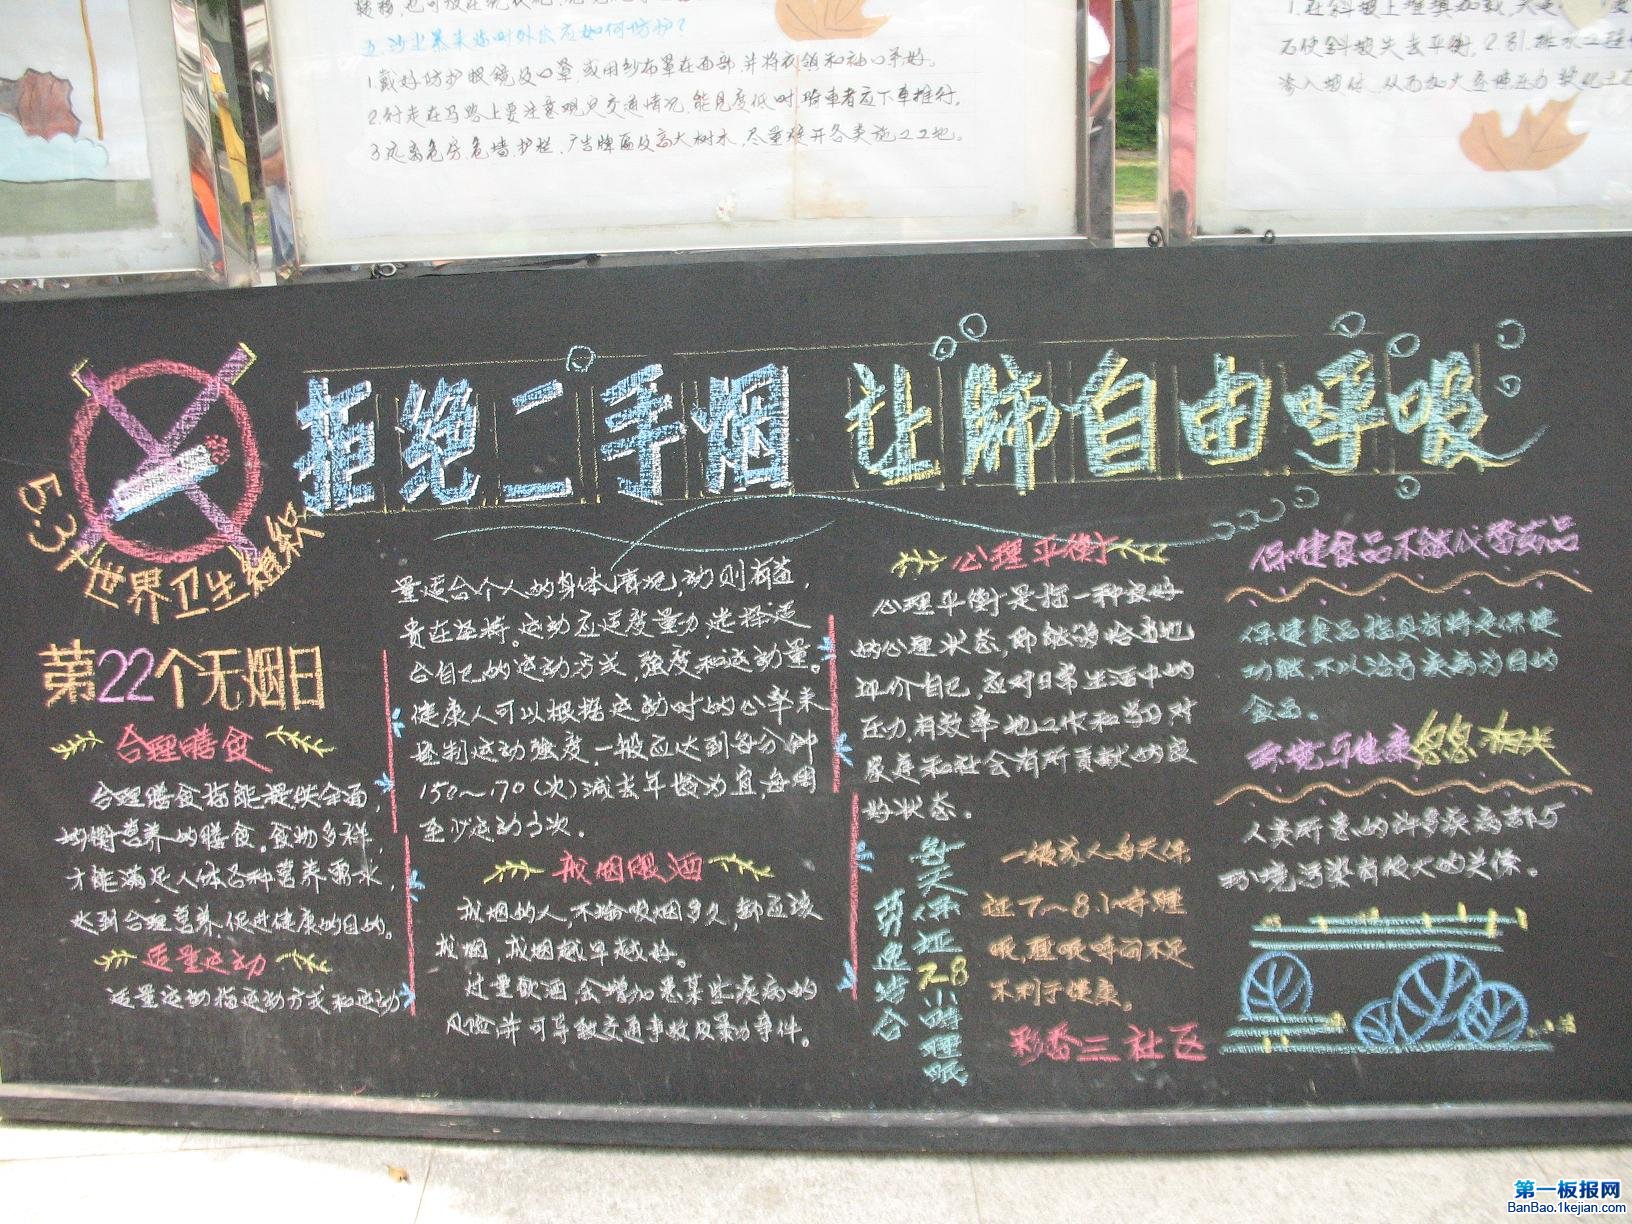 五.沙尘暴来临时外出应如何防护?
1.戴好防护眼镜及口罩,或用纱布罩在面部,并将衣领和袖口系好。
2.行走在马路上要注意观察交通情况,能见度低时,骑车者应下车推行。
3.远离危房,危墙,护栏,广告牌匾及高大树木,尽量避开各类施工工地。
石使斜坡失去平衡. 2.引.排水工程
渗入坡体,从而加大孔隙压力 软化土
拒绝二手烟 让肺自由呼吸
5.31世界卫生组织
第22个无烟日
合理膳食
合理膳食指能提供全面,
均衡营养的膳食。食物多样,
才能满足人体各种营养需水,
达到合理营养,促进健康的目的。
适量运动
适量运动指运动方式和运动
量适合个人的身体情况,动则有益,
贵在坚持。运动应适度量力,选择适
合自己的运动方式,强度和运动量。
健康人可以根据运动时的心率来
控制运动强度,一般应达到每分钟
150~170(次)减去年龄为宜,每周
至少运动3次。
戒烟限酒
戒烟的人,不论吸烟多久,都应该
戒烟,戒烟越早越好。
过量饮酒,会增加患某些疾病的
风险,并可导致交通事故及暴力事件。
心理平衡
心理平衡是指一种良好
的心理状态,即能够恰当地
评价自己,应对日常生活中的
压力,有效率地工作和学习,对
家庭和社会有所贡献的良
好状态。
劳逸结合
每天保证7-8小时睡眠
一般成人每天保
证7~8小时睡
眠,睡眠时间不足
不利于健康。
彩香三社区
保健食品不能代替药品
保健食品指具有特定保健
功能,不以治疗疾病为目的
食品。
环境与健康息息相关
人类所患的许多疾病都与
环境污染有很大的关系。
第一板报网
BanBao.1kejian.com